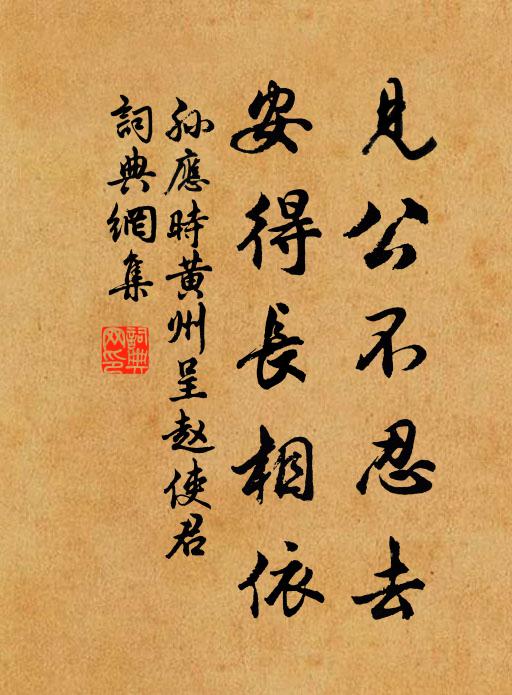 見公不忍去
安得長相依
孫應時黄州呈赵使君
詞典網集
詞典网印